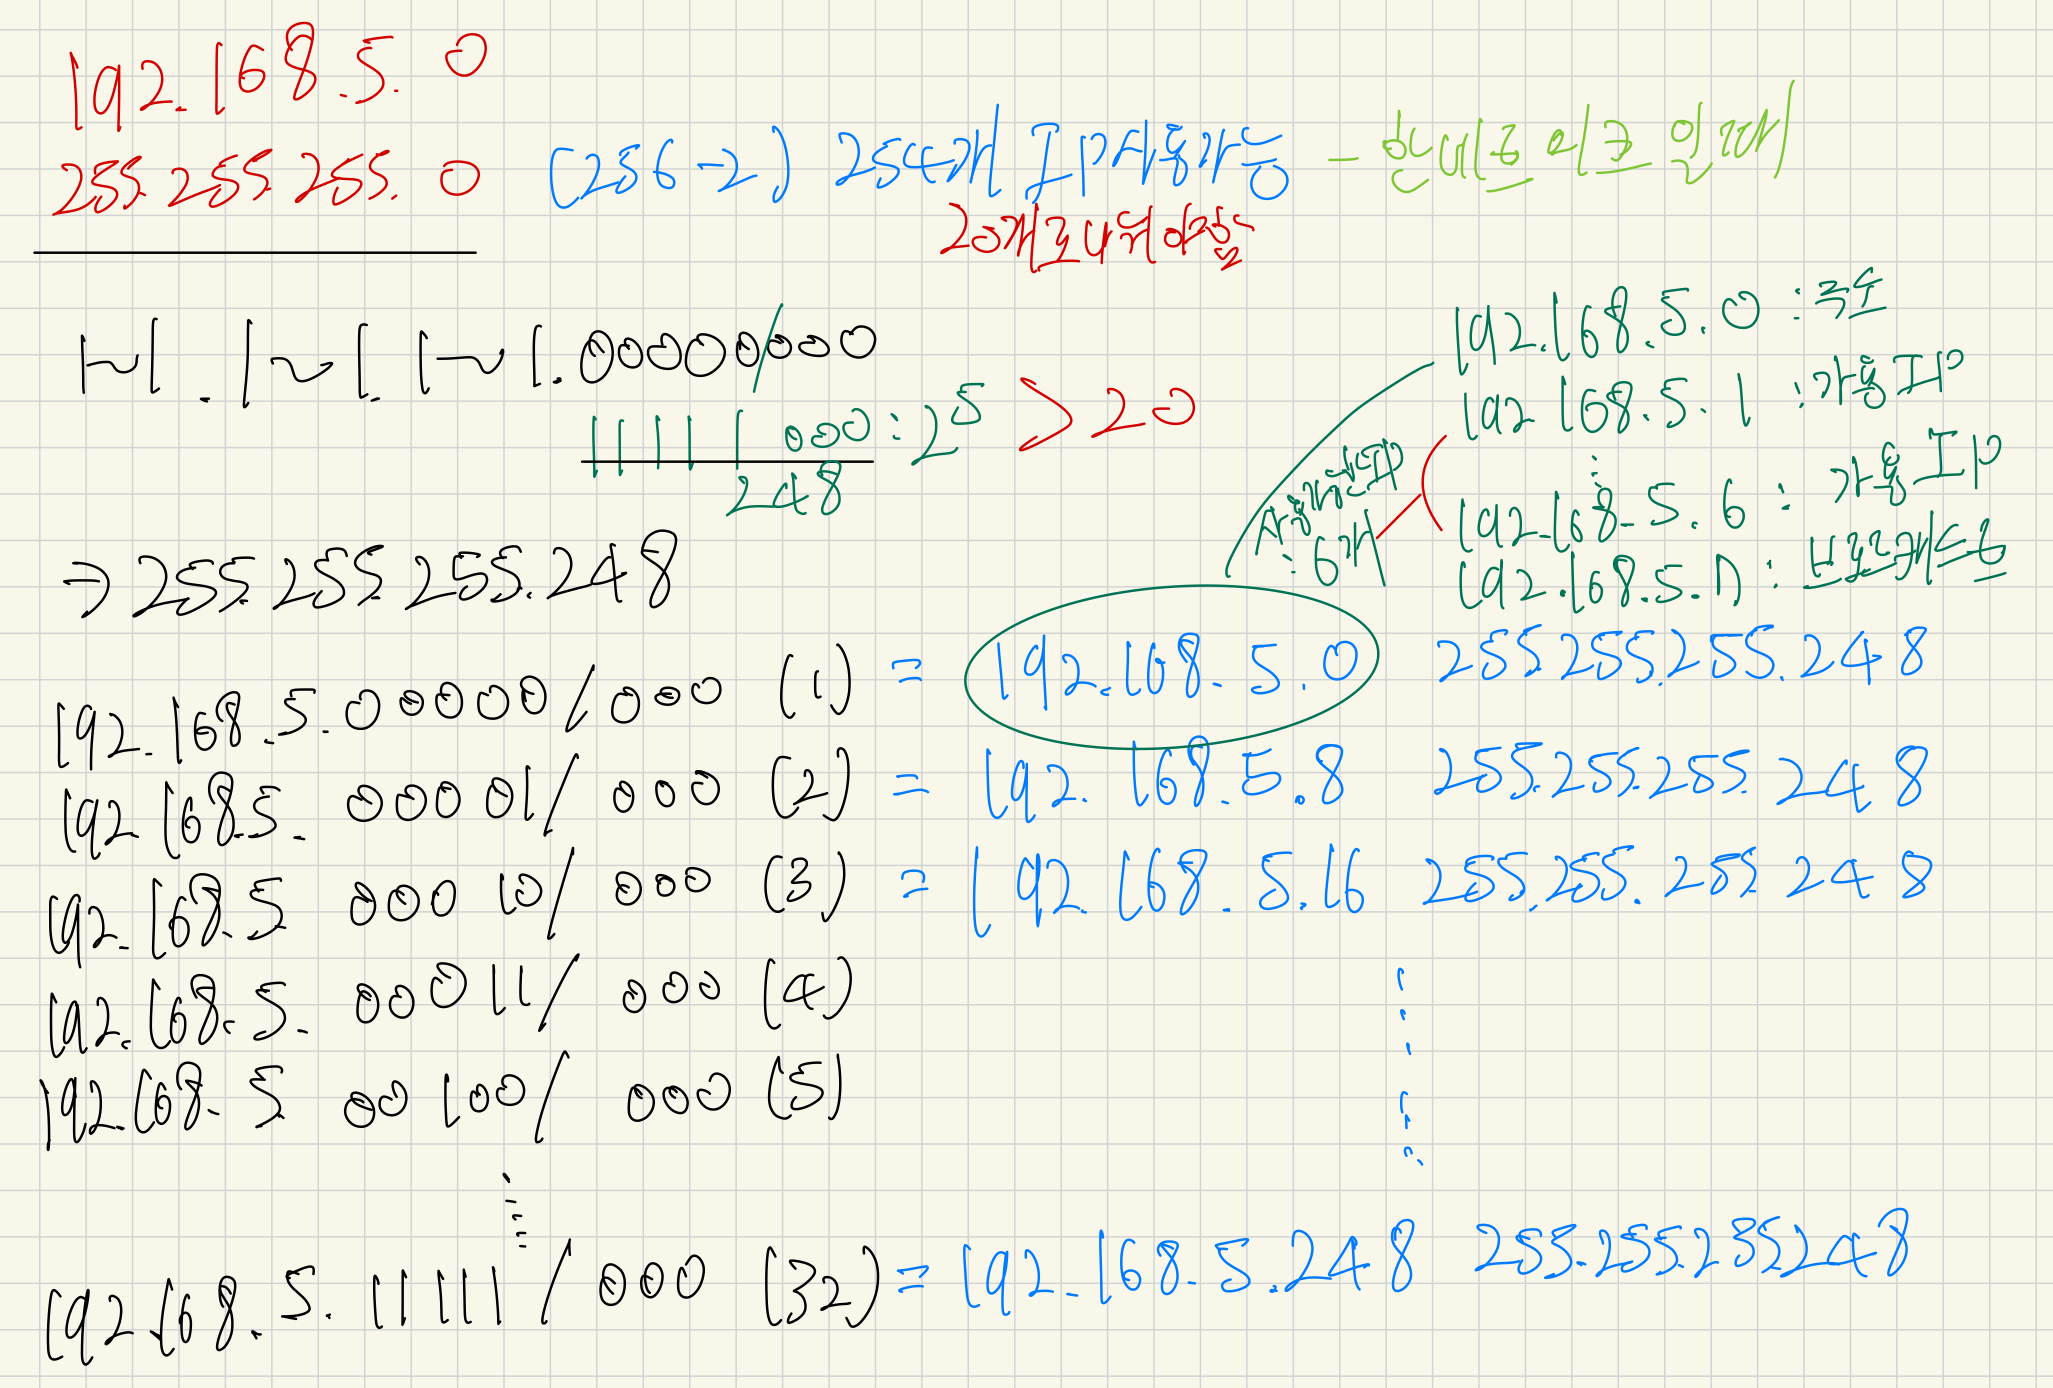 192.168.5.0
255.255.255.0 (256-2) 254개 IP사용가능 - 한네트워크일때
20개로 나눠야함
1~1.1~1.1~1.00000/000
11111 000 : 2^5 > 20
248
⇒ 255.255.255.248
192.168.5.0 : 주소
192.168.5.1 : 가용IP
⋮
192.168.5.6 : 가용IP
192.168.5.7 : 브로드캐스트
사용가능한IP
: 6개
192.168.5.00000/000 (1) = 192.168.5.0 255.255.255.248
192.168.5.00001/000 (2) = 192.168.5.8 255.255.255.248
192.168.5 00010/000 (3) = 192.168.5.16 255.255.255.248
192.168.5.00011/000 (4)
192.168.5 00100/000 (5)
⋮
192.168.5.11111/000 (32) = 192.168.5.248 255.255.255.248